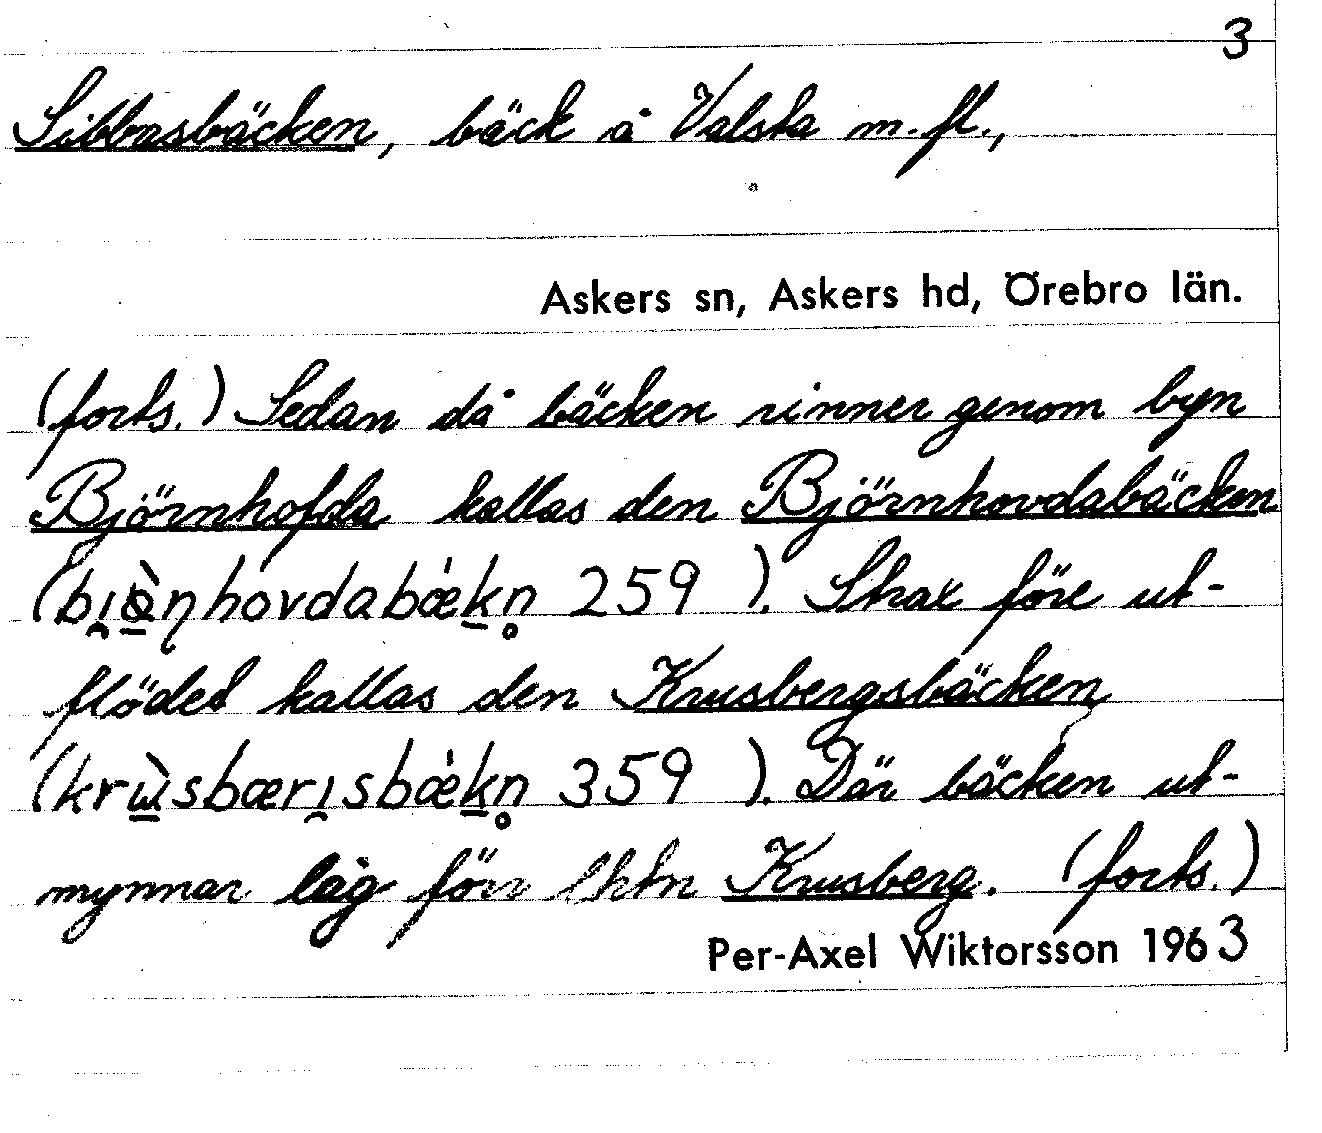 3
Sibborsbäcken, bäck å Valsta m.fl.,
Askers sn, Askers hd, Örebro län.
(forts.) Sedan då bäcken rinner genom byn
Björnhofda kallas den Björnhovdabäcken
259 ). Strax före ut-
flödet kallas den Krusbergsbäcken
359 ). Där bäcken ut-
mynnar låg förr lht Krusberg. (forts.)
Per-Axel Wiktorsson 1963